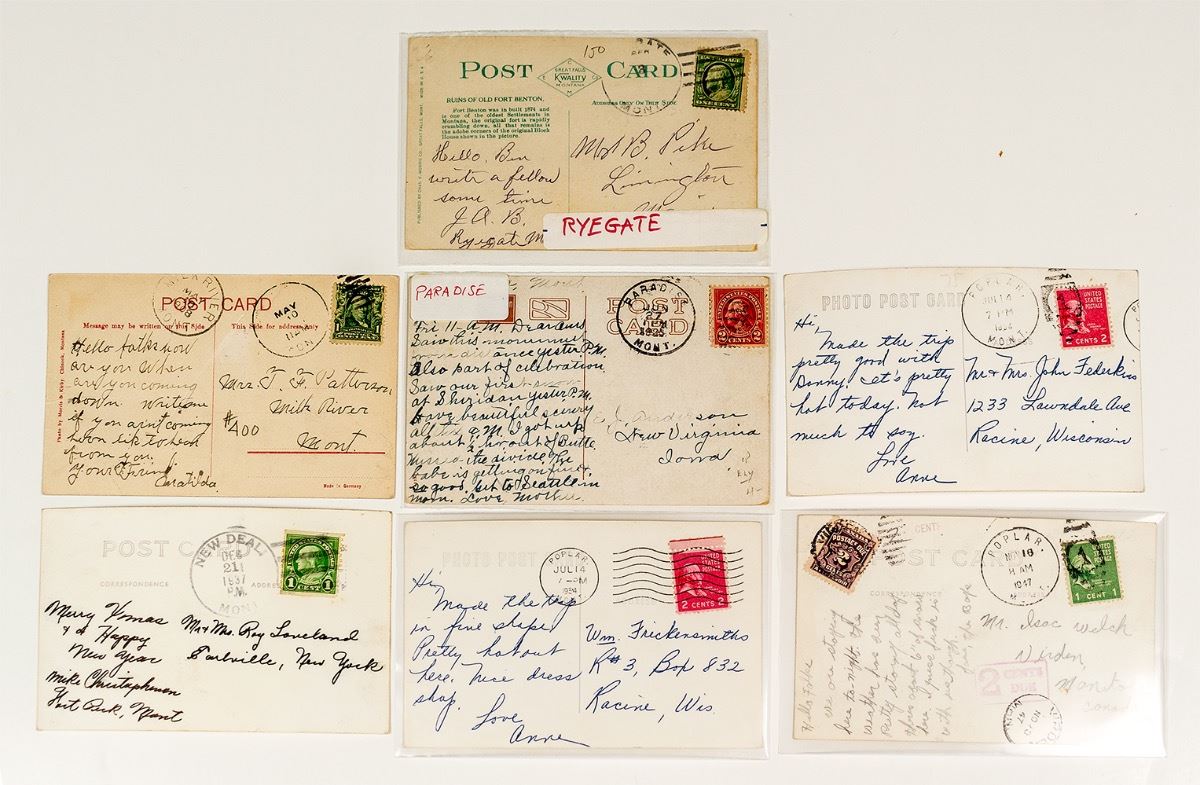 150
POST CARD
GREAT FALLS
KWALITY
MONTANA
RUINS OF OLD FORT BENTON.
ADDRESS ONLY ON THIS SIDE
Fort Benton was built 1874 and
is one of the oldest Settlements in
Montana, the original fort is rapidly
crumbling down, all that remains is
the adobe corners of the original Block
House shown in the picture.
GATE
MONT.
U.S. POSTAGE
ONE CENT
Hello, Ben
write a fellow
some time
J. A. B.
Ryegate M
B. Pike
Limington
RYEGATE
POST CARD
Message may be written on this Side
This Side for address only
RIVER
MONT
MAY
10
1
Photo by Morris & Kirby, Chinook, Montana
Hello folks how
are you When
are you coming
down. write me
if you aint coming
from you.
Your Friend
Matilda
Mrs. T. F. Patterson,
Milk River
#400
Mont.
Made in Germany
PARADISE
POST
CARD
PARADISE
JUN
27
MONT.
2 CENTS 2
Fri 11- A.M. Dear ones
Saw this monument
yester P.M.
Also part of celebration
Saw our first
at Sheridan yester P.M.
Have beautiful scenery
all the A.M. I got up
about hour out of Butte
the divide. The
babe is getting on fine
so good. Get to Seattle in
morn. Love Mother.
J. Anderson
New Virginia
Iowa
PHOTO POST CARD
POPLAR,
JUL 14
7 PM
1954
MONT.
UNITED
STATES
POSTAGE
CENTS 2
Hi,
Made the trip
pretty good with
Donny. Let's pretty
hot today. Not
much to say.
Love
Anne
Mr & Mrs. John Federkins
1233 Lawndale Ave
Racine, Wisconsin
POST CARD
CORRESPONDENCE
ADDRESS
NEW DEAL,
DEC
21
1937
P.M.
MONT
1 CENT 1
Merry Xmas
& a Happy
New Year
Mike Christophersen
Fort Peck, Mont
Mr & Mrs. Roy Loveland
Earlville, New York
PHOTO POST
POPLAR,
JUL 14
7-PM
1954
2 CENTS 2
Hi,
Made the trip
in fine shape.
Pretty hot out
here. Nice dress
shop.
Love
Anne
Wm. Frickensmiths
R#3, Box 832
Racine, Wis.
POST CARD
POSTAGE DUE
2
POPLAR,
18
AM
1947
1 CENT 1
Hello Folks
we are stopping
here tonight. the
weather has been
Pretty stormy
about 6" of snow
here
Mr. Isac Welch
Virden,
Manto
Canada
2 CENTS
DUE